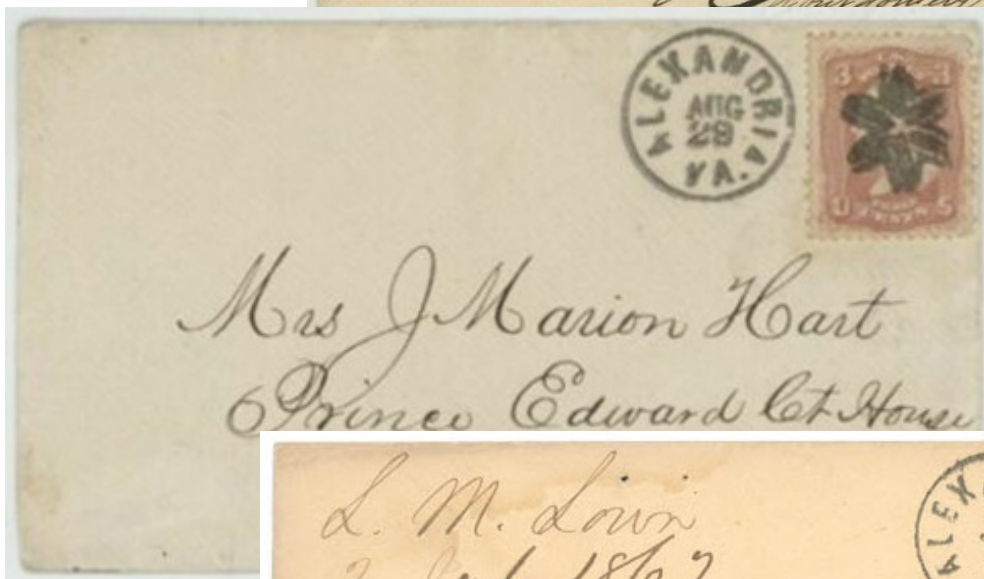 ALEXANDRIA
AUG
28
VA.
3 3
U S
Mrs J Marion Hart
Prince Edward Ct House
L. M.
1867
ALEX